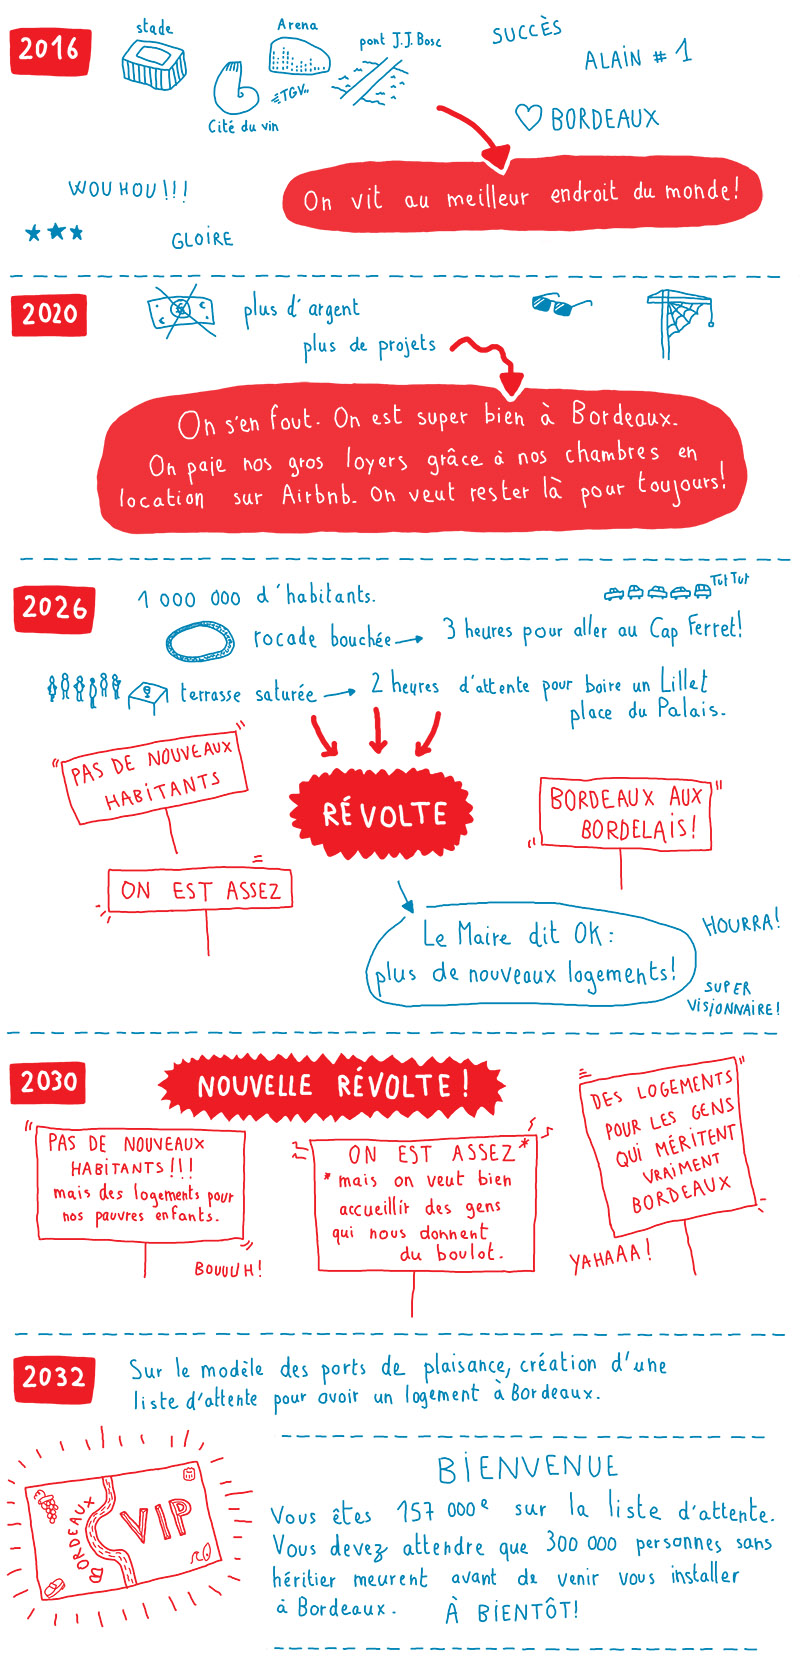 2016
stade
Arena
pont J.J. Bosc
TGV
Cité du vin
SUCCÈS
ALAIN # 1
BORDEAUX
WOUHOU!!!
GLOIRE
On vit au meilleur endroit du monde!
2020
plus d'argent
plus de projets
On s'en fout. On est super bien à Bordeaux.
On paie nos gros loyers grâce à nos chambres en
location sur Airbnb. On veut rester là pour toujours!
2026
1 000 000 d'habitants.
Tut Tut
rocade bouchée
3 heures pour aller au Cap Ferret!
terrasse saturée
2 heures d'attente pour boire un Lillet
place du Palais.
"PAS DE NOUVEAUX
HABITANTS"
RÉVOLTE
BORDEAUX AUX"
"BORDELAIS!
ON EST ASSEZ
Le Maire dit OK:
plus de nouveaux logements!
HOURRA!
SUPER
VISIONNAIRE!
2030
NOUVELLE RÉVOLTE!
"PAS DE NOUVEAUX
HABITANTS!!!
mais des logements pour
nos pauvres enfants."
BOUUUH!
ON EST ASSEZ*
*mais on veut bien
accueillir des gens
qui nous donnent
du boulot.
DES LOGEMENTS"
POUR LES GENS
QUI MÉRITENT
VRAIMENT
BORDEAUX
YAHAAA!
2032
Sur le modèle des ports de plaisance, création d'une
liste d'attente pour avoir un logement à Bordeaux.
BORDEAUX
VIP
BIENVENUE
Vous êtes 157 000e sur la liste d'attente.
Vous devez attendre que 300 000 personnes sans
héritier meurent avant de venir vous installer
à Bordeaux. À BIENTÔT!